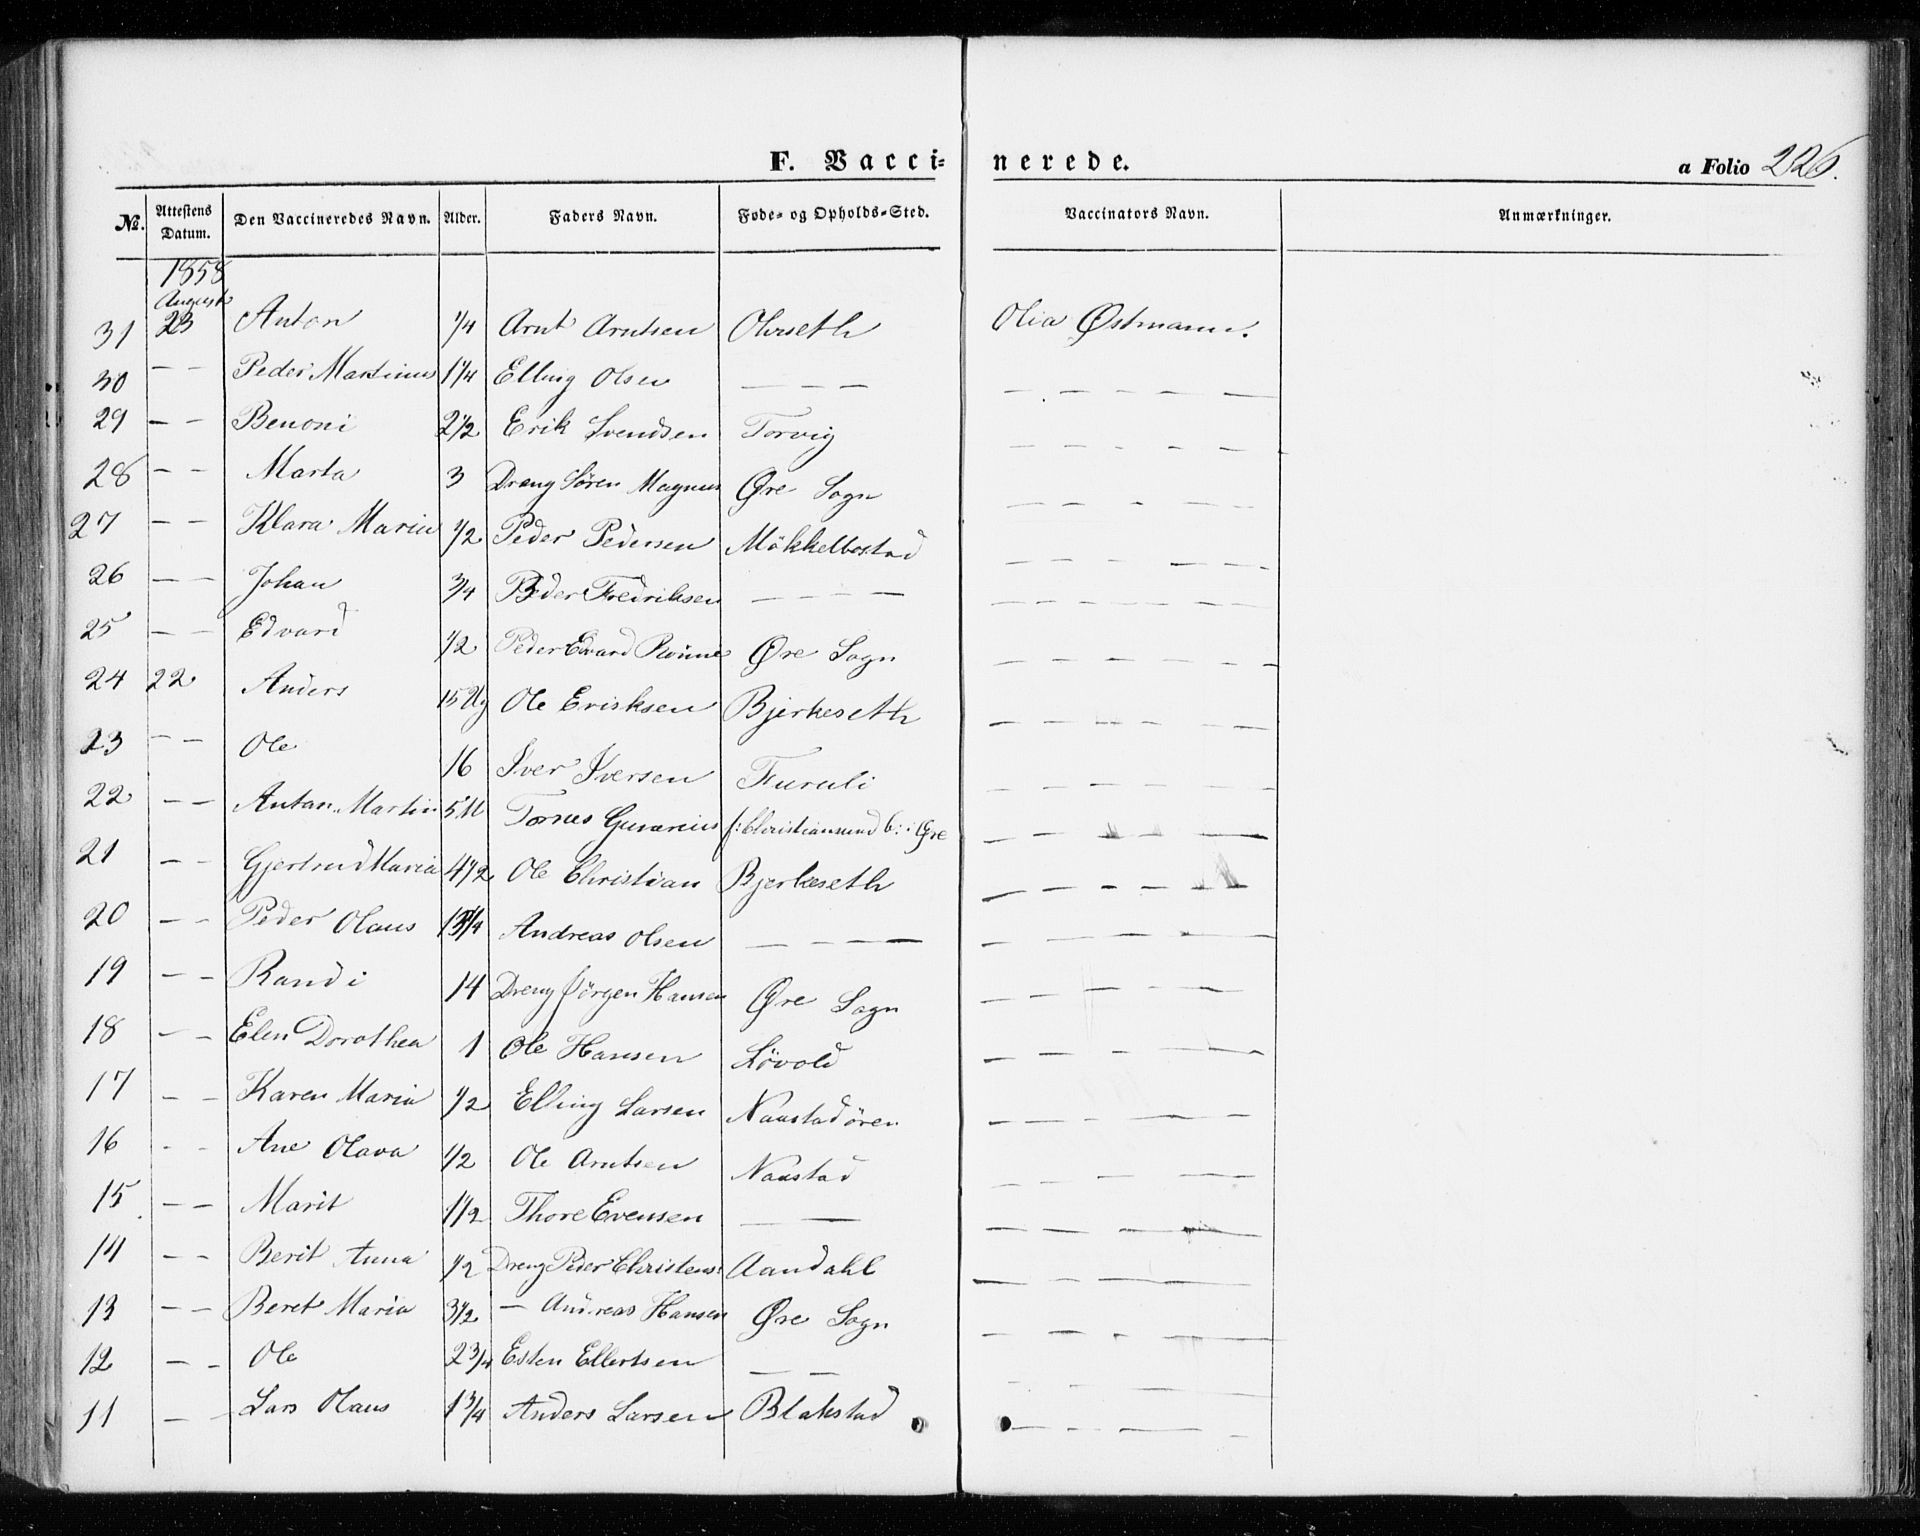 F. Vacci- nerede. a Folio 226.
No. Attestens Datum. Den Vaccineredes Navn. Alder. Faders Navn. Føde- og Opholds-Sted. Vaccinators Navn. Anmærkninger.
1858
August
31 23 Anton 1/4 Arnt Arntsen Olvseth Olia Østmann.
30 — — Peder Martinus 1 1/4 Elling Olsen — — — — — — — —
29 — — Benoni 2 1/2 Erik Svendsen Torvig — — — — —
28 — — Marta 3 Dreng Søren Magnus Øre Sogn — — — — —
27 — — Klara Maria 1/2 Peder Pedersen Mökkelbostad — — — — —
26 — — Johan 3/4 Peder Fredriksen — — — — — — — — —
25 — — Edvard 1/2 Peder Edvard Rönne Øre Sogn — — — — —
24 22 Anders 15 Ug Ole Eriksen Bjerkeseth — — — — —
23 — — Ole 16 Iver Iversen Furuli — — — — —
22 — — Anton Martin 5 M Tornes Gunerius f: Christiansund b: i Øre — — — — —
21 — — Gjertrud Maria 4 1/2 Ole Christian Bjerkeseth — — — — —
20 — — Peder Olaus 1 3/4 Andreas Olsen — — — — — — — — —
19 — — Randi 14 Dreng Jörgen Hansen Øre Sogn — — — — —
18 — — Elen Dorothea 1 Ole Hansen Lövold — — — — —
17 — — Karen Maria 1/2 Elling Larsen Naastadören — — — — —
16 — — Ane Olava 1/2 Ole Arntsen Naastad — — — — —
15 — — Marit 1 1/2 Thore Evensen — — — — — — —
14 — — Berit Anna 1/2 Dreng Peder Christens: Aandahl — — — — —
13 — — Beret Maria 3 1/2 — Andreas Hansen Øre Sogn — — — — —
12 — — Ole 2 3/4 Esten Ellertsen — — — — — — —
11 — — Lars Olaus 1 3/4 Anders Larsen Blakstad — — — — —